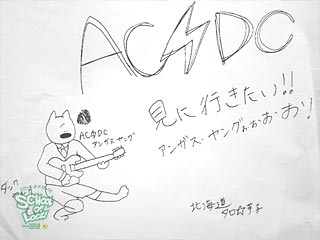 AC⚡DC
見に行きたい!!
アンガス・ヤングぉぉぉお!
AC⚡DC
アンガス・ヤング
ダック
School of Lock!
北海道